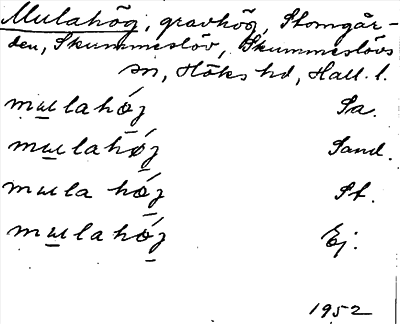 Mulahög, gravhög, Stomgår-
den, Skummeslöv, Skummeslövs
sn, Höks hd, Hall. l.
mulahǿʒ Sa.
mulahǿʒ Sand.
mula hǿʒ St.
mulahǿʒ Ej.
1952